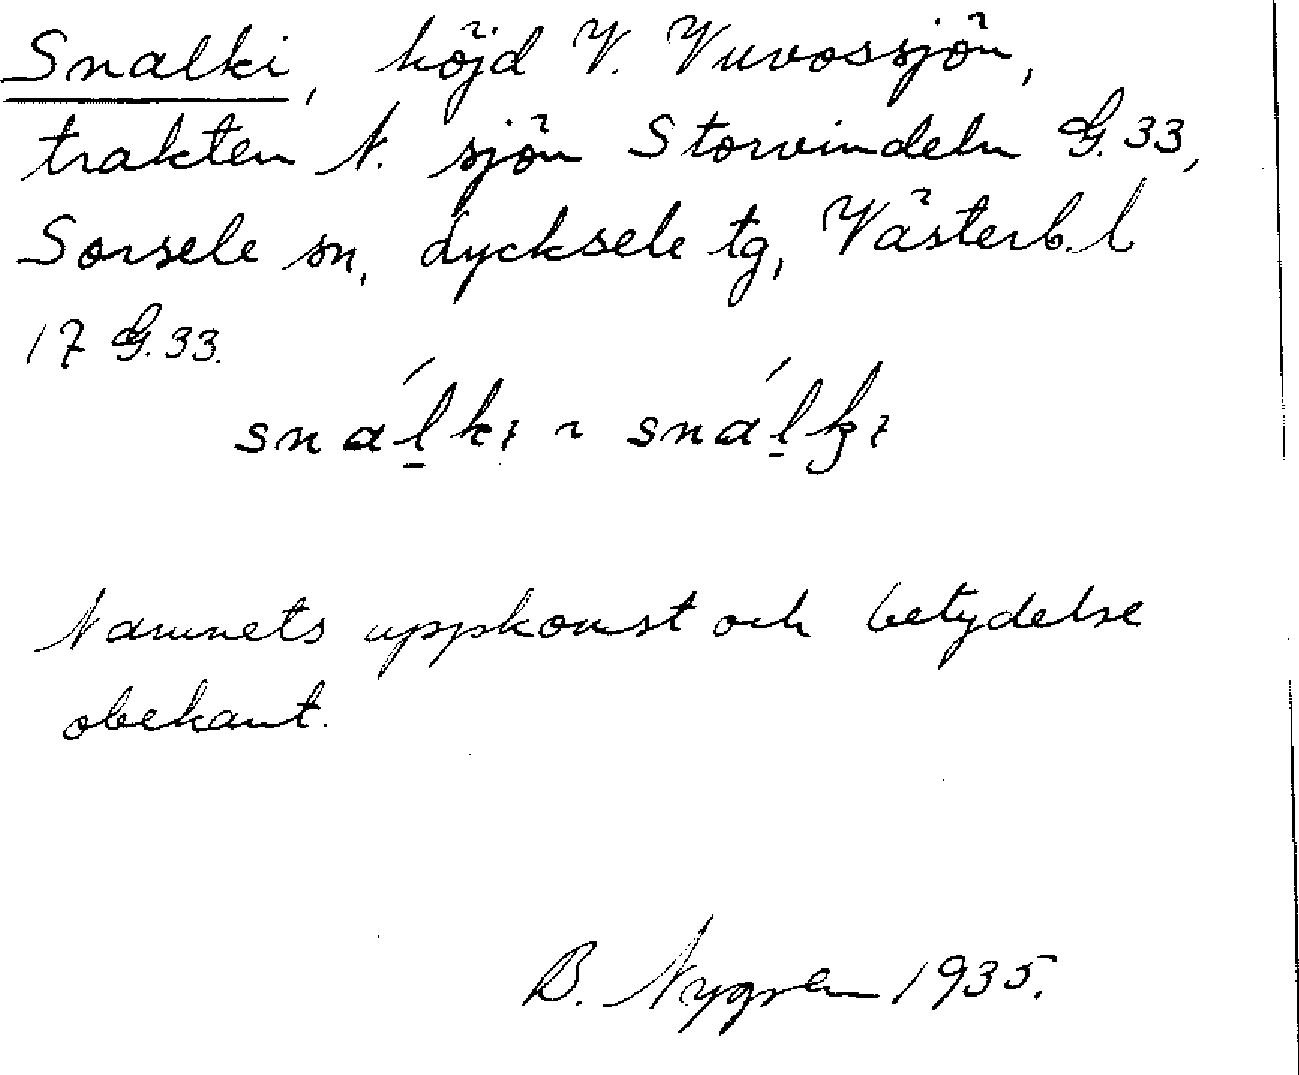 Snalki, höjd V. Vuvossjön,
trakten N. sjön Storvindeln G. 33,
Sorsele sn, Lycksele tg, Västerb. l
17 G. 33.
snálkı ~ snálkı
Namnets uppkomst och betydelse
obekant.
B. Nygren 1935.